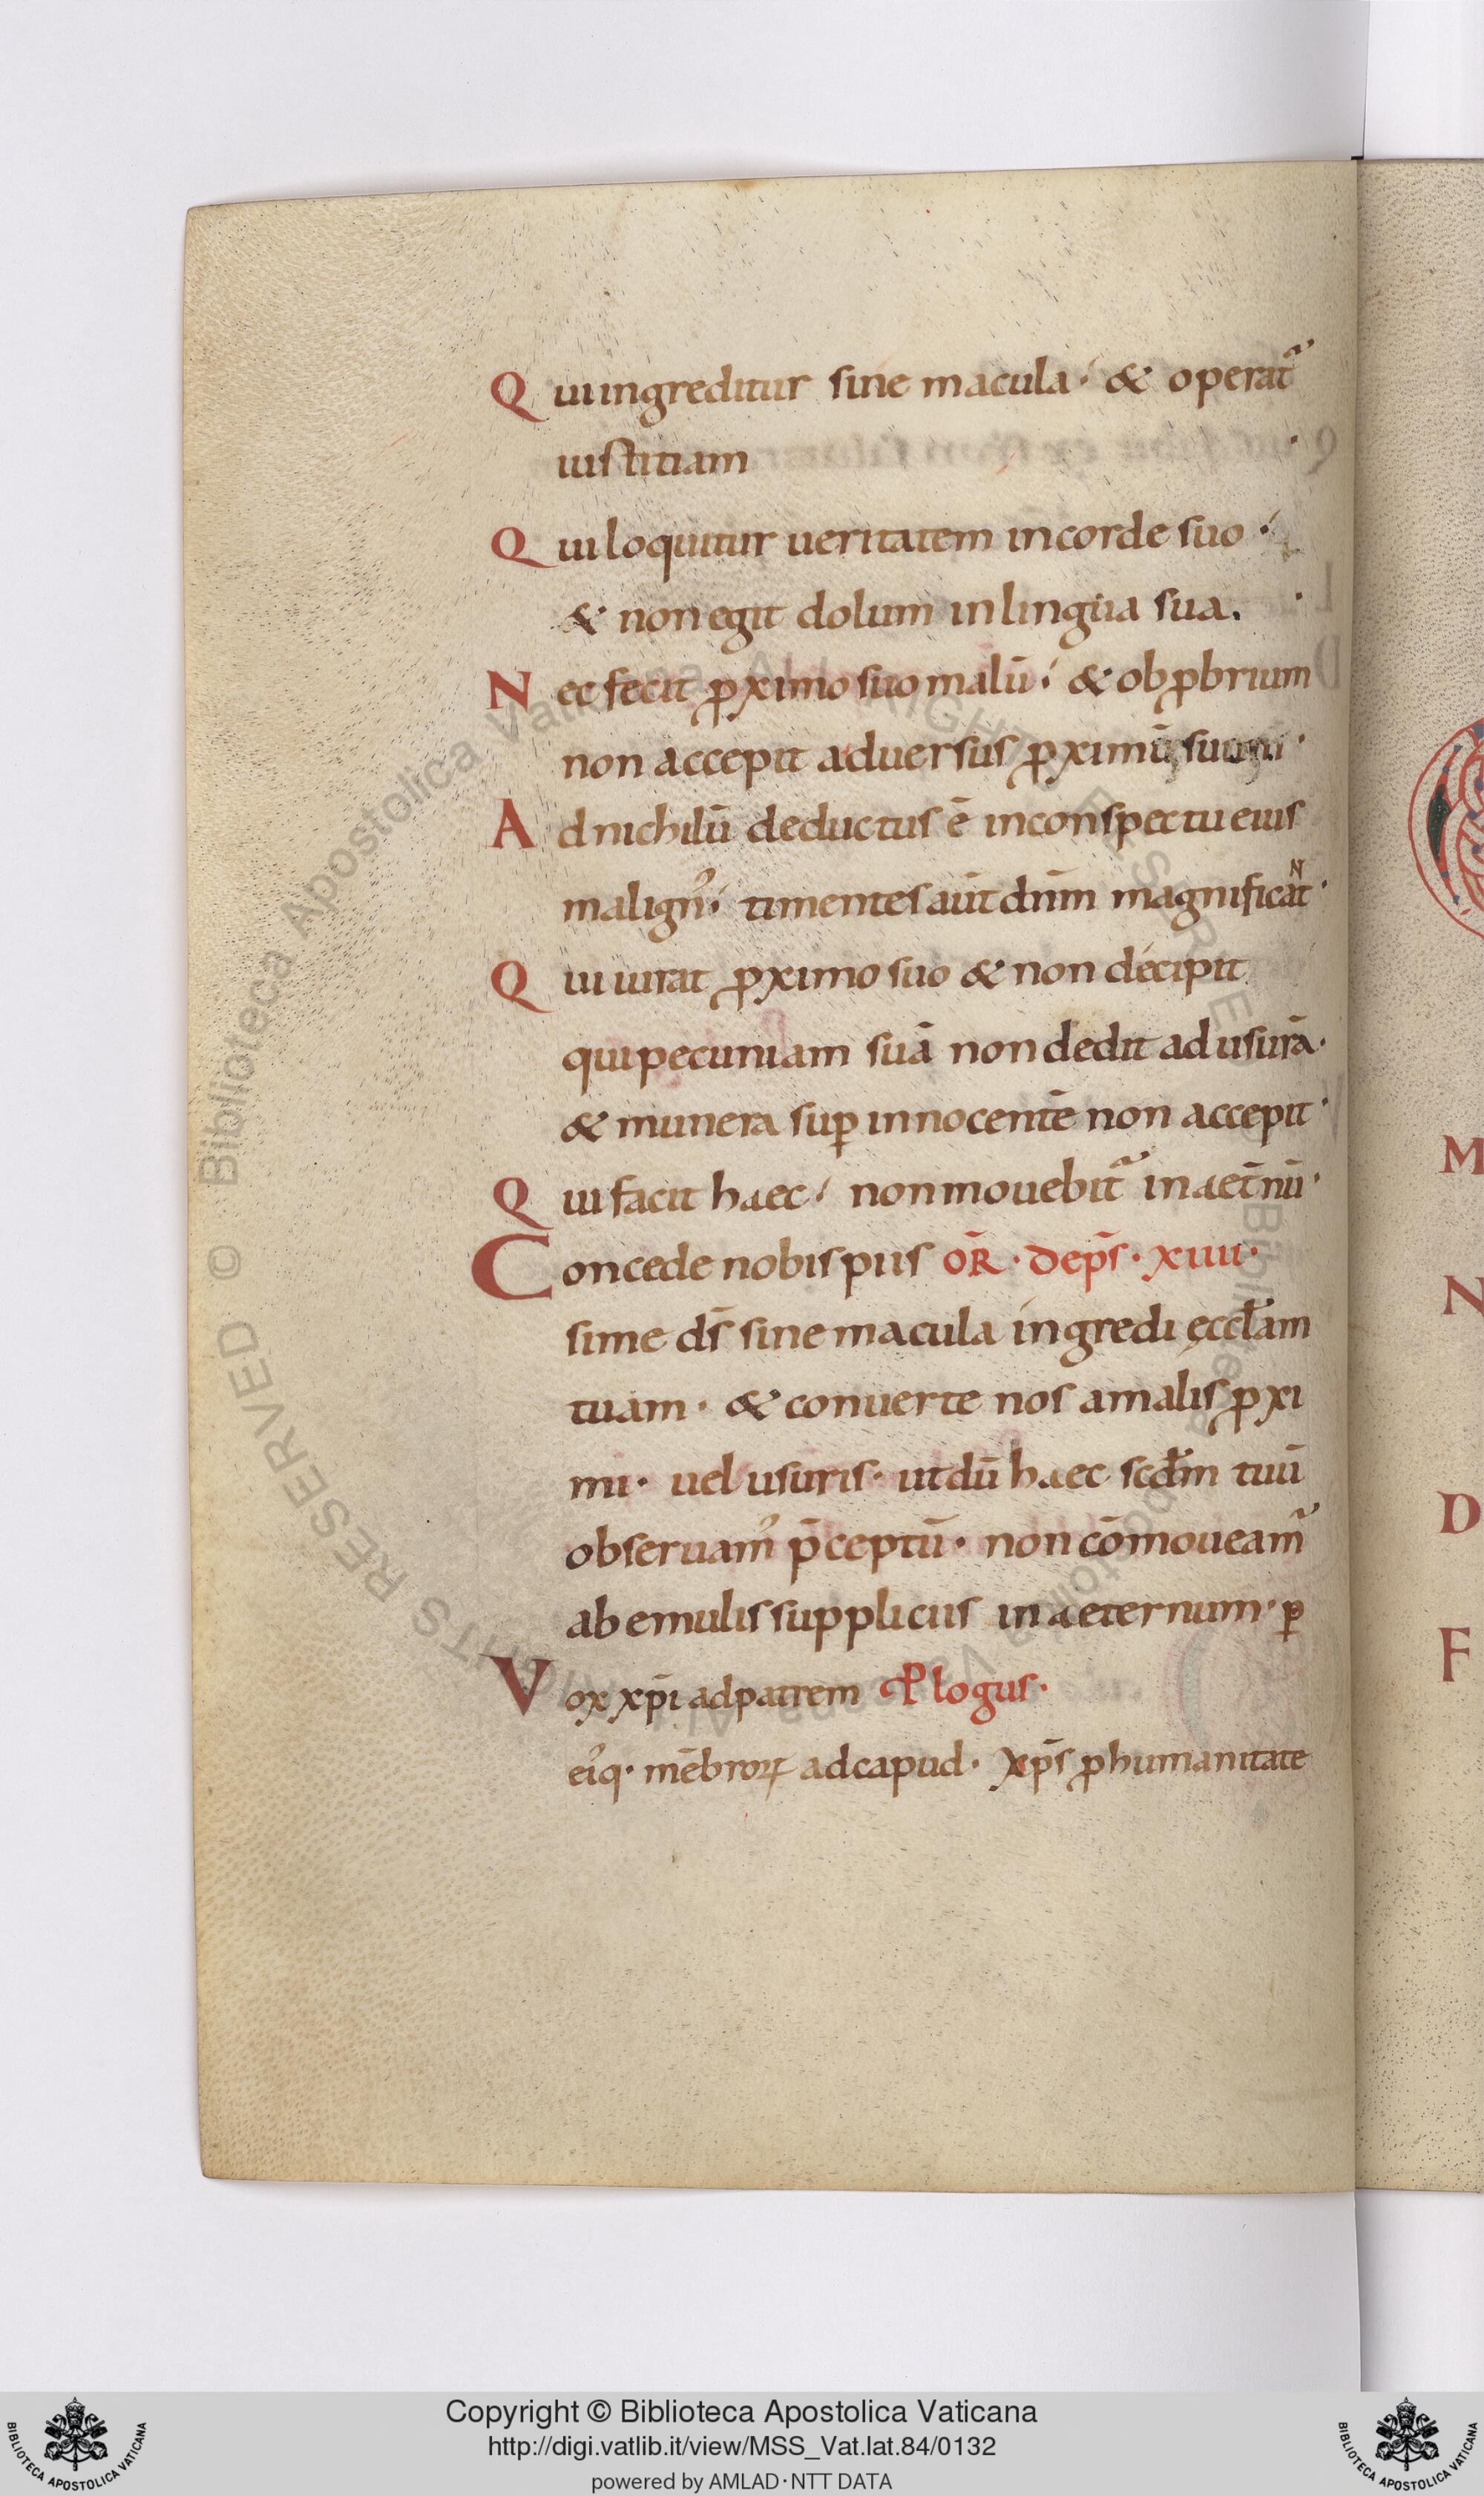 Qui ingreditur sine macula· & operat̃
iustitiam
Qui loquitur ueritatem in corde suo·
& non egit dolum in lingua sua.
Nec fecit ꝓximo suo malū· & obꝓbrium
non accepit aduersus ꝓximū suum·
Ad nichilū deductus ē in conspectu eius
malign᾽· timentes aūt dn̄m magnificaNt·
Qui iurat ꝓximo suo & non décipit
qui pecuniam suā non dedit ad usurā·
& munera suꝑ innocentē non accepit·
Qui facit haec· non mouebit̃ in aet̄nū·
Concede nobis piis OR̄· de ps̄· xiiii·
sime ds̄ sine macula ingredi ęccl̄am
tuam· & conuerte nos a malis ꝓxi
mi· uel usuris· ut dū haec scd̄m tuū
obseruam᾽ p̄ceptū· non cōmoueam̃
ab emulis suppliciis in aeternum· ꝑ
Vox xp̄i ad patrem Plogus·
ei᾽q· mēbroꝝ ad capud· xp̄s ꝓ humanitate
Copyright © Biblioteca Apostolica Vaticana
http://digi.vatlib.it/view/MSS_Vat.lat.84/0132
powered by AMLAD·NTT DATA
BIBLIOTECA APOSTOLICA VATICANA
BIBLIOTECA APOSTOLICA VATICANA
M
N
D
F